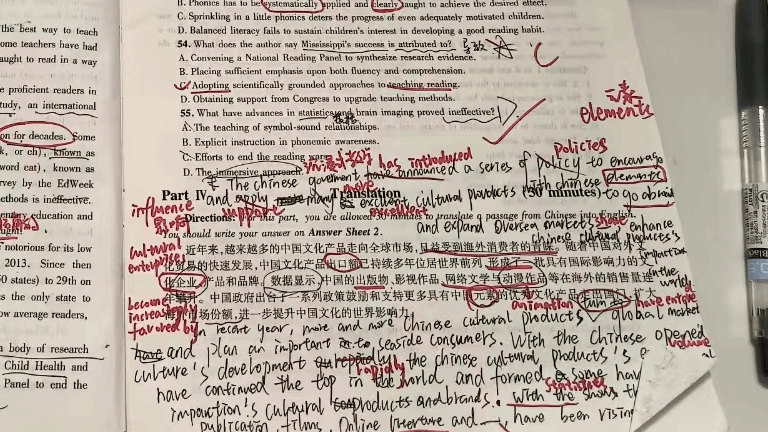 the best way to teach
ome teachers have had
aught to read in a way
e proficient readers in
tudy, an international
on for decades. Some
k, or ch), known as
word cat), known as
rvey by the EdWeek
ethods is ineffective.
education and
notorious for its low
2013. Since then
0 states) to 29th on
s the only state to
ow average readers,
a body of research
Child Health and
Panel to end the
B. Phonics has to be systematically applied and clearly taught to achieve the desired effect.
C. Sprinkling in a little phonics deters the progress of even adequately motivated children.
D. Balanced literacy fails to sustain children's interest in developing a good reading habit.
54. What does the author say Mississippi's success is attributed to?
A. Convening a National Reading Panel to synthesize research evidence.
B. Placing sufficient emphasis upon both fluency and comprehension.
C. Adopting scientifically grounded approaches to teaching reading.
D. Obtaining support from Congress to upgrade teaching methods.
55. What have advances in statistics and brain imaging proved ineffective?
A. The teaching of symbol-sound relationships.
B. Explicit instruction in phonemic awareness.
C. Efforts to end the reading wars.
D. The immersive approach.
元素
elements
policies
has introduced
The chinese goverment have announced a series of policy to encourage
elements
and apply many excellent cultural products with chinese to go abroad
more
support
excellent
Part IV Translation (30 minutes)
influence
影响
and expand oversea markets enhance
chinese cultural products's
Directions: For this part, you are allowed 30 minutes to translate a passage from Chinese into English.
You should write your answer on Answer Sheet 2.
cultural
enterprises
近年来,越来越多的中国文化产品走向全球市场,且益受到海外消费者的青睐。随着中国对外文
化贸易的快速发展,中国文化产品出口额已持续多年位居世界前列,形成了一批具有国际影响力的文
化企业、产品和品牌。数据显示,中国的出版物、影视作品、网络文学与动漫作品等在海外的销售量逐
年攀升。中国政府出台了一系列政策鼓励和支持更多具有中国元素的优秀文化产品走出国门,扩大
海外市场份额,进一步提升中国文化的世界影响力。
in the
world
become
increasingly
favored by
animation
have entered
In recent year, more and more Chinese cultural products global market
and plan an important in to seaside consumers. With the Chinese opened
volume
culture's development rapidly the chinese cultural products's e
have continued the top in the world, and formed some hav
statistics
impaction's cultural products and brands. With the shows th
publication, films, Online literture and have been rising